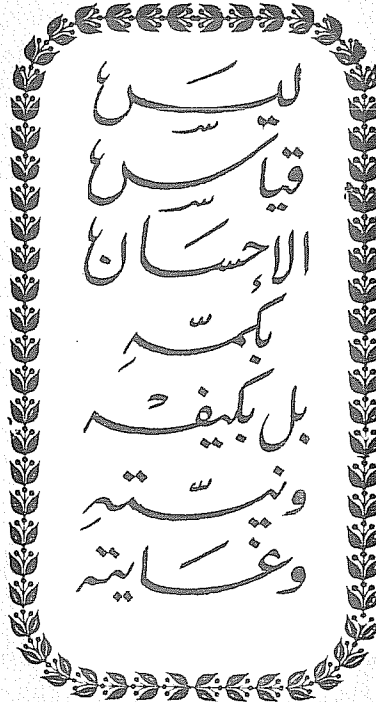 ليس
قياس
الإحسان
بكمّهِ
بل بكيفْه
ونيّتهِ
وغايته